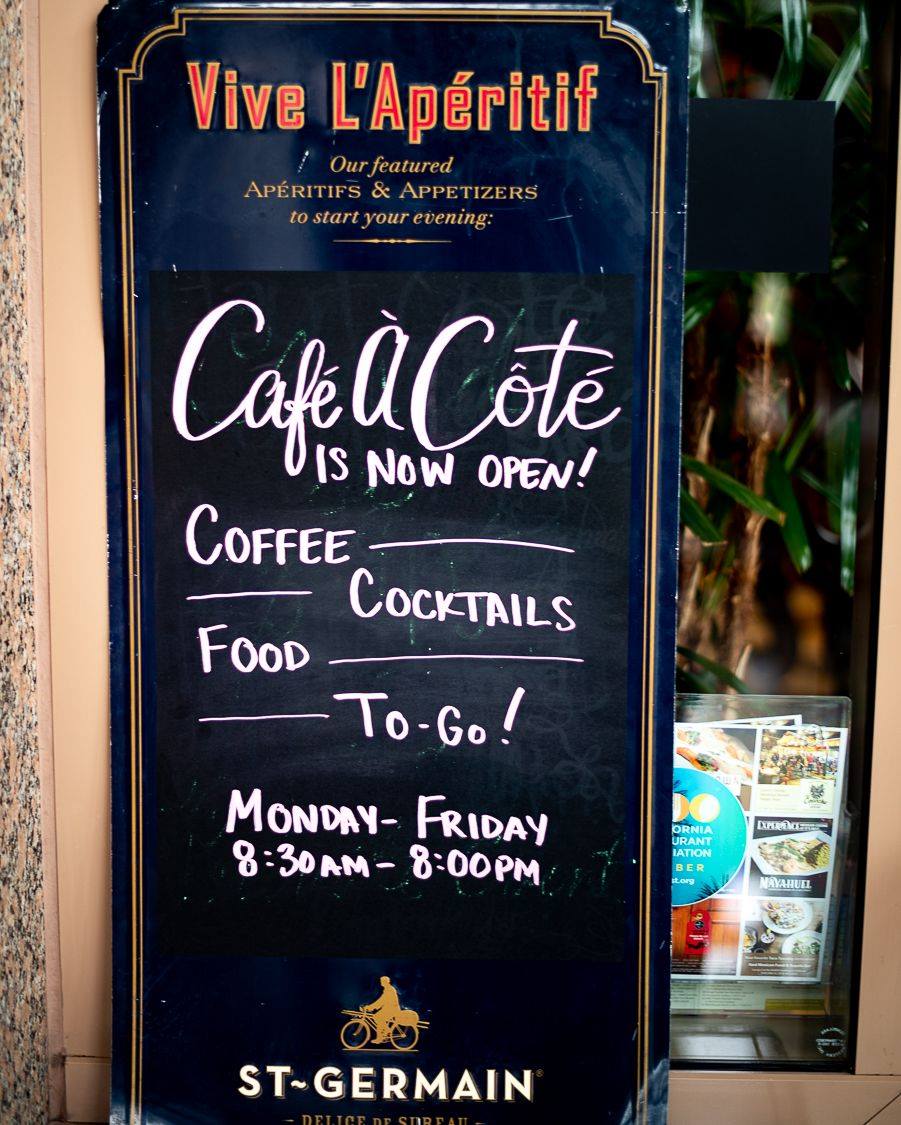 Vive L'Apéritif
Our featured
APÉRITIFS & APPETIZERS
to start your evening:
Café À Côté
IS NOW OPEN!
COFFEE
COCKTAILS
FOOD
TO-GO!
MONDAY - FRIDAY
8:30AM - 8:00PM
ST~GERMAIN®
DELICE DE SUREAU
ORNIA
URANT
IATION
BER
st.org
EXPERIENCE
MAYAHUEL